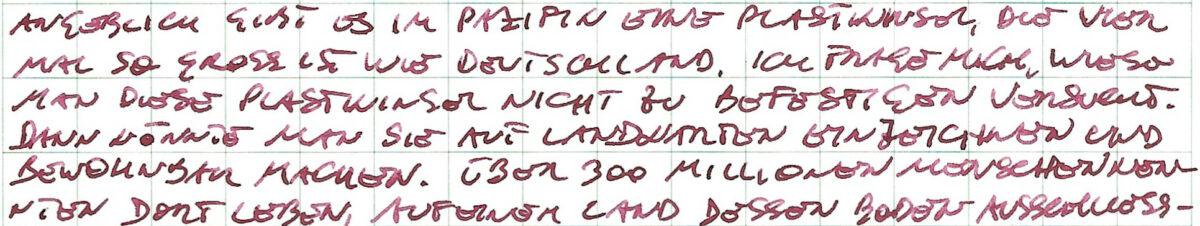 ANGEBLICH GIBT ES IM PAZIFIK EINE PLASTIKINSEL, DIE VIER
MAL SO GROSS IST WIE DEUTSCHLAND. ICH FRAGE MICH, WIESO
MAN DIESE PLASTIKINSEL NICHT ZU BEFESTIGEN VERSUCHT.
DANN KÖNNTE MAN SIE AUF LANDKARTEN EINZEICHNEN UND
BEWOHNBAR MACHEN. ÜBER 300 MILLIONEN MENSCHEN KÖNN-
TEN DORT LEBEN, AUF EINEM LAND DESSEN BODEN AUSSCHLIESS-